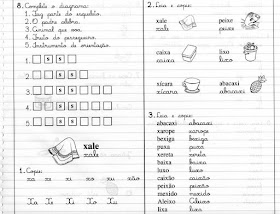 8. Complete o diagrama:
1. Faz parte do esqueleto.
2. O padre celebra.
3. Animal que voa.
4. Fruto do pessegueiro.
5. Instrumento de orientação.
1. s s
2. s s
3. s s
4. s s
5. s s
xale
xale
1. Copie:
xa xe xi xo xu xão
Xa Xe Xi Xo Xu
2. Leia e copie:
xale
xale
peixe
peixe
caixa
caixa
lixo
lixo
xícara
xícara
abacaxi
abacaxi
3. Leia e copie:
abacaxi abacaxi
xarope xarope
bexiga bexiga
puxa puxa
xereta xereta
baixa baixa
luxo luxo
caixão caixão
peixão peixão
mexido mexido
Aleixo Aleixo
lixa lixa